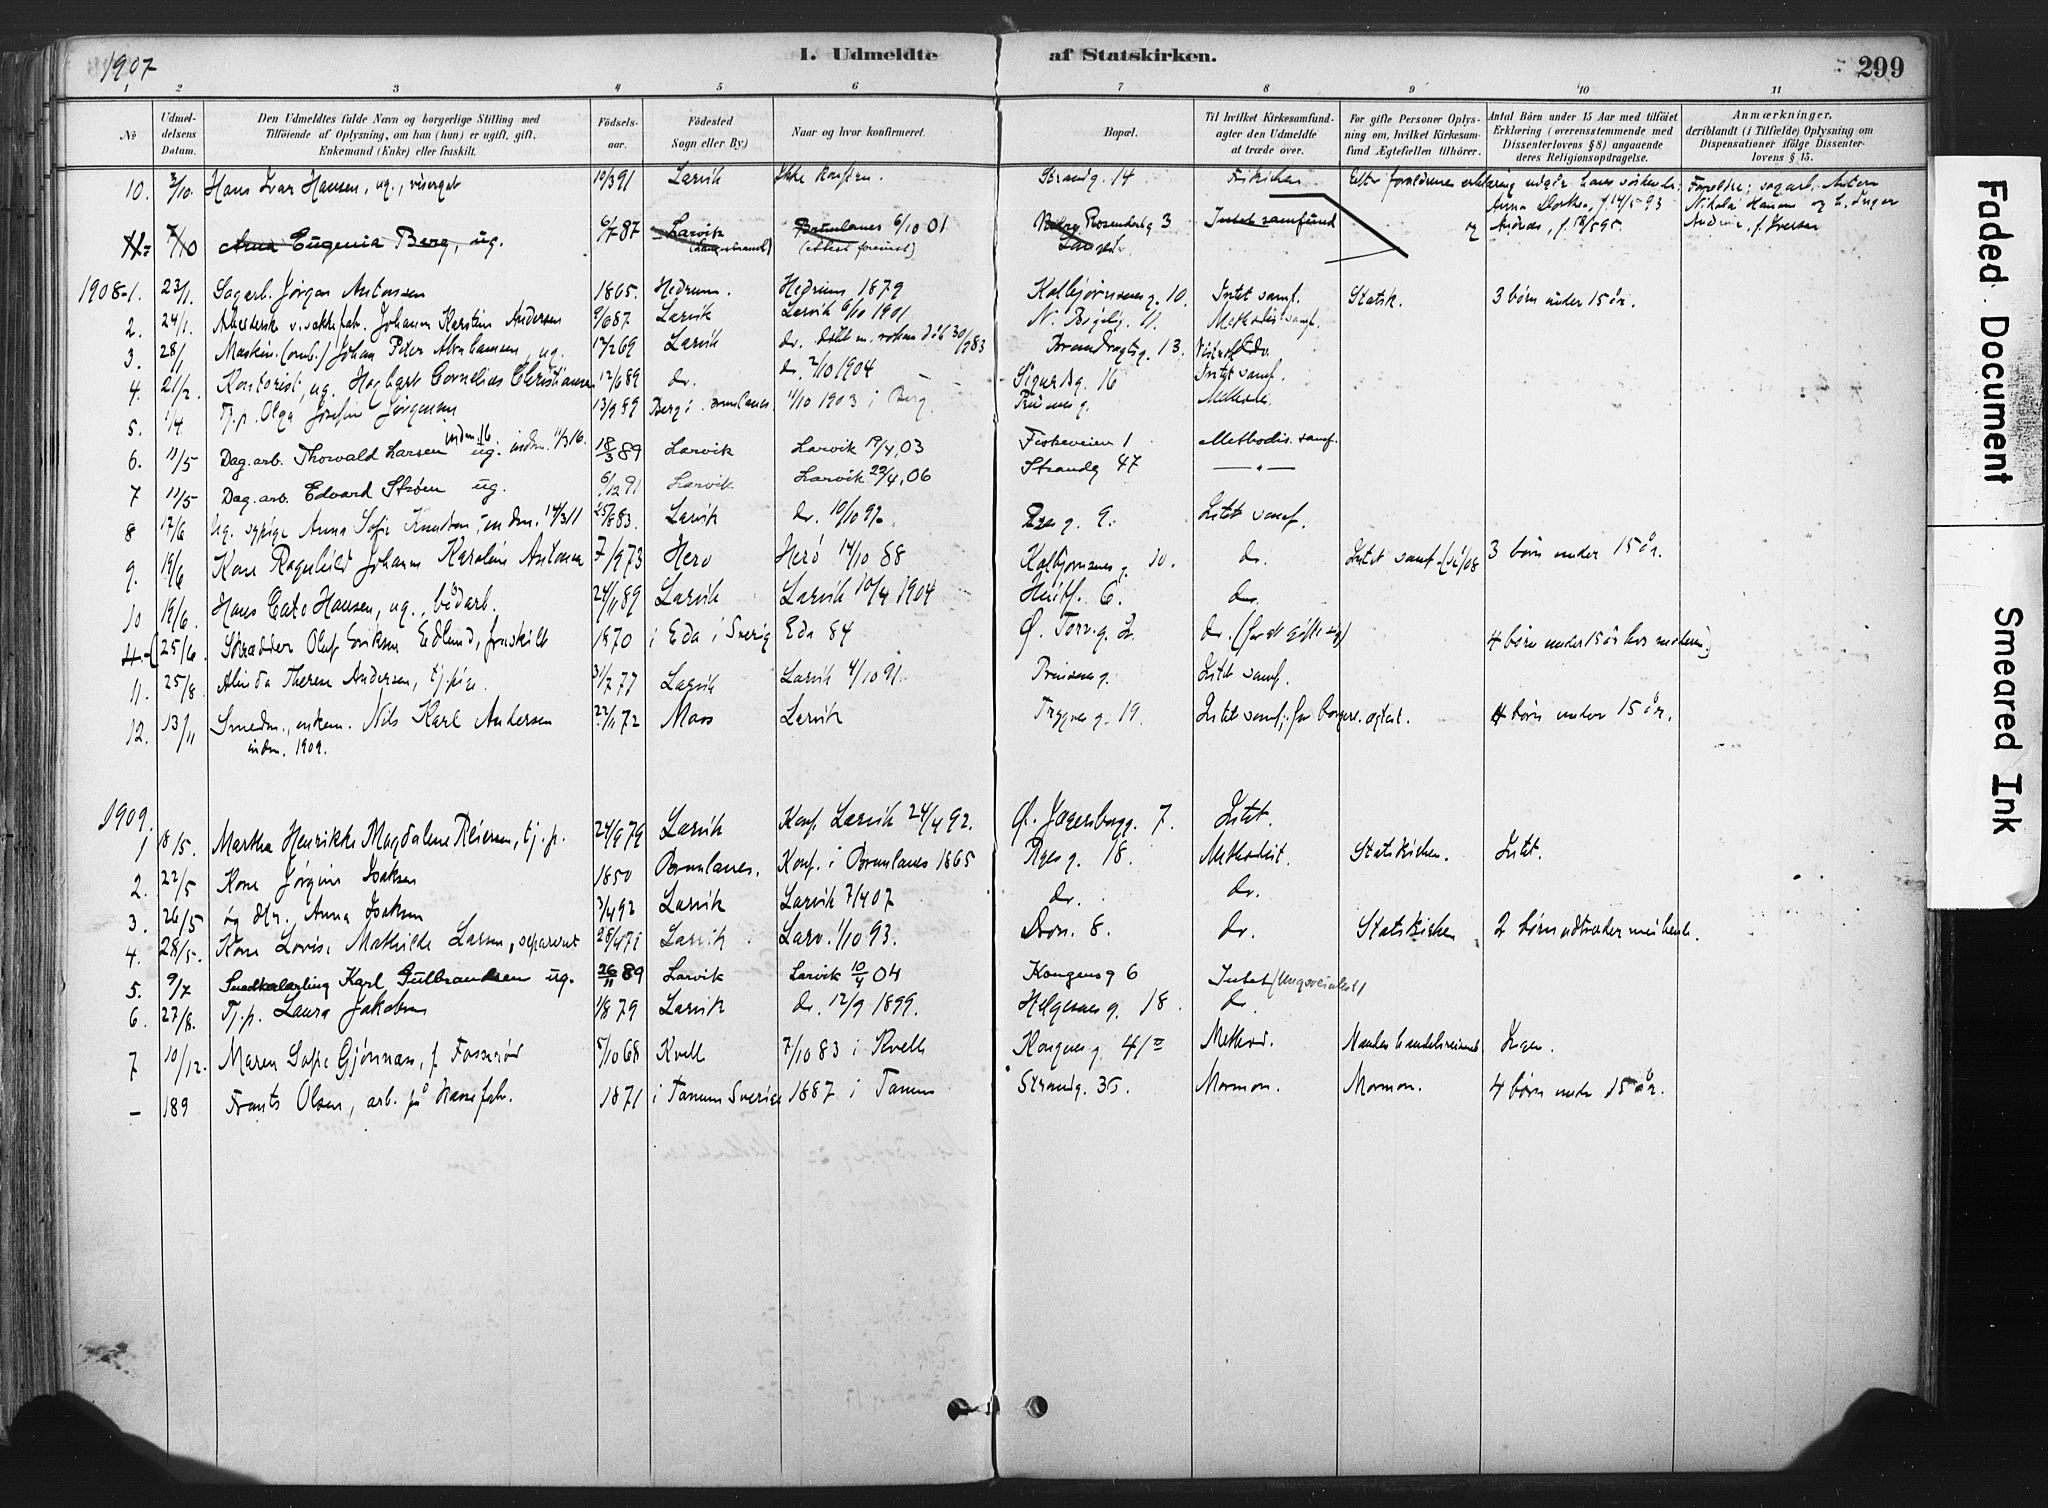 1907
I. Udmeldte af Statskirken.
299
1 2 3 4 5 6 7 8 9 10 11
No
Udmeldelsens Datum.
Den Udmeldtes fulde Navn og borgerlige Stilling med Tilföiende af Oplysning, om han (hun) er ugift, gift, Enkemand (Enke) eller fraskilt.
Födselsaar.
Födested Sogn eller By.)
Naar og hvor konfirmeret.
Bopæl.
Til hvilket Kirkesamfund agter den Udmeldte at træde over.
For gifte Personer Oplysning om, hvilket Kirkesamfund Ægtefællen tilhörer.
Antal Börn under 15 Aar med tilföiet Erklæring (overensstemmende med Dissenterlovens § 8) angaaende deres Religionsopdragelse.
Anmærkninger, deriblandt (i Tilfælde) Oplysning om Dispensationer ifölge Dissenterlovens § 15.
10. 3/10 Hans Ivar Hansen, ug., visergut 10/3 91 Larvik Ikke konfirm. Strandg. 14 Frikirken
Anna Dorthea, f. 14/5 93
og Andreas, f. 18/5 95.
11. 7/10 Anna Eugenia Berg, ug. 6/7 87 Larvik Brunlanes 6/10 01 Rosendalsg 3 Intet samfund
1908-1. 23/1. Sagarb. Jörgen Antonsen 1865. Hedrum. Hedrum 1879 Kolbjørnsens g. 10. Intet samf. Statsk. 3 börn under 15 år.
2. 24/1. Johann Karstein Andersen 9/6 87 Larvik Larvik 6/10 1901 N. Bøkelig. 11. Methodistsamf.
3. 28/1 Maskin. Johan Peter Abrahamsen, ug. 17/2 69 Larvik do. 13. do.
4. 21/2. Kontorist, ug. Hagbart Cornelius Christiansen 12/6 89 do. do. 2/10 1904 Sigurdsg. 16 Intet samf.
5. 1/4 Tj.p. Olga Josefine Jörgensen 13/9 89 Berg i Brunlanes. 11/10 1903 i Berg Methodis.
6. 11/5 Dag.arb. Thorvald Larsen ug. indm. 11/3 16. 18/3 89 Larvik Larvik 19/4, 03 Fiskeveien 1 Methodis. samf.
7 11/5 Dag.arb. Edvard Strøm ug. 6/12 91 Larvik Larvik 22/4, 06 Strandg 47 — " —
8 17/6 Ug. sypige Anna Sofie Knudsen, indm. 14/3 11 25/8 83. Larvik do. 10/10 97. 9. Intet samf.
9. 19/6 Kone Ragnhild Johanne Karoline Antonsen 7/9 73 Herö Herö 14/10 88 Kolbjørnsens g. 10. do. Intet samf. 3 börn under 15 år.
10 19/6. Hans Cato Hansen, ug., bödarb. 24/11 89 Larvik Larvik 10/4 1904 6. do.
25/6. Skrædder Oluf Erikson Edlund, fraskilt 1870 i Eda i Sverig Eda 84 Ø. Torvg. 2. do. 4 börn under 15 år hos moderen.)
11. 25/8. Alvida Therese Andersen, tj.pige. 31/7 77 Larvik Larvik 4/10 91. Prinsens g. Intet samf.
12. 13/11 Smedm., enkem. Nils Karl Andersen 22/11 72 Moss Larvik Trygves g. 19. Intet samf. for borgerl. egtesk. 4 börn under 15 år.
indm. 1909.
1909.
1 18/5. Martha Henrikke Magdalene Reiersen, tj.p. 24/9 79 Larvik Konf. Larvik 24/4 92. Ø. Jegersborgg. 7. Intet.
2. 22/5 Kone Jörgine Isaksen 1850 Brunlanes. Konf. i Brunlanes 1865 Ryes g. 18. Methodist. Statskirken. Intet.
3. 26/5 og dtr. Anna Isaksen 3/4 92 Larvik Larvik 7/4 07 do. do.
4. 28/5. Kone Lovise Mathilde Larsen, separeret 28/4 71 Larvik Larv. 1/10 93. Dron. 8. do. Statskirken 2 börn udtræder med hende.
5. 9/7 Snedkerlærling Karl Gulbrandsen ug. 26/11 89 Larvik Larvik 10/4 04 Kongensg 6 Intet
6. 27/8. Tj.p. Laura Jakobsen 1/8 79 Larvik do. 12/9 1899. Helgesens g. 18. do
7 10/12. Maren Sofie Gjönnæs, f. Fosserød 5/10 68 Kvell 7/10 83 i Kvell Kongens g 41 Method. Ingen.
– 189 Frants Olsen, arb. på Kassefabr. 1871 i Tanum Sverige 1887 i Tanum Strandg. 35. Mormon. Mormon. 4 börn under 15 år.
Faded Document
Smeared Ink